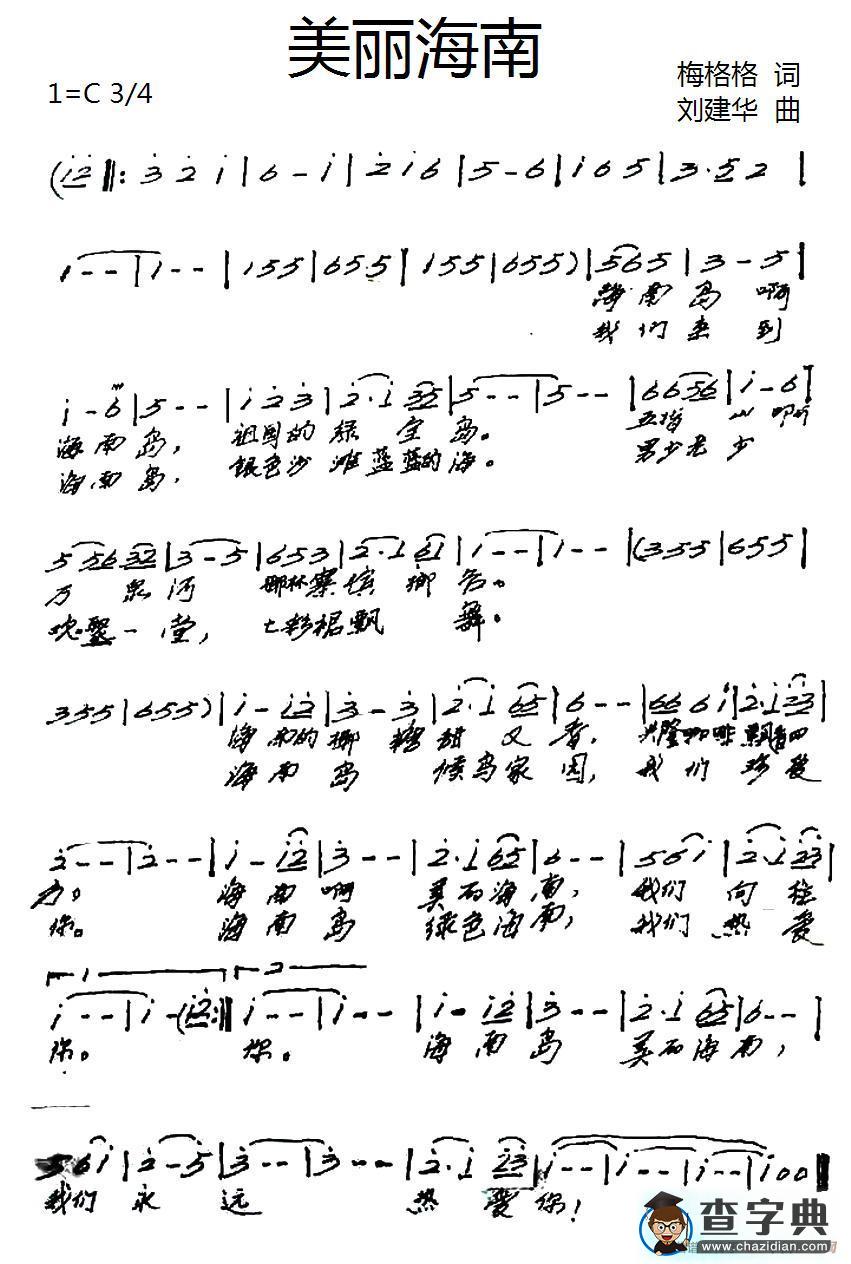 美丽海南
1=C 3/4
梅格格 词
刘建华 曲
(i̇2̇ ‖: 3̇ 2̇ i | 6 - i | 2̇ i 6 | 5 - 6 | i 6 5 | 3 · 5 2 |
1 - - | 1 - - | 1 5 5 | 6 5 5 | 1 5 5 | 6 5 5 ) | 5 6 5 | 3 - 5 |
海南岛 啊
我们来到
i - 6 | 5 - - | i 2̇ 3̇ | 2̇ · i 3 5 | 5 - - | 5 - - | 6 6 5 6 | i - 6 |
海南岛, 祖国的绿宝岛。 五指 山 啊
海南岛, 银色沙滩蓝蓝的海。 男少老少
5 5 6 3 2 | 3 - 5 | 6 5 3 | 2 · 1 6 1 | 1 - - | 1 - - | ( 3 5 5 | 6 5 5 |
万泉河 椰林寨
欢聚一堂, 七彩裙飘舞。
3 5 5 | 6 5 5 ) | i - i 2̇ | 3̇ - 3̇ | 2̇ · i 6 5 | 6 - - | 6 6 6 i | 2̇ · i 2̇ 3̇ |
海南的椰糖甜又香, 兴隆咖啡飘香四
海南岛 候鸟家园, 我们珍爱
2̇ - - | 2̇ - - | i - i 2̇ | 3̇ - - | 2̇ · i 6 5 | 6 - - | 5 6 i | 2̇ · i 2̇ 3̇ |
方。 海南啊 美丽海南, 我们向往
你。 海南岛 绿色海南, 我们热爱
1 2
i - - | i - ( i 2̇ :‖ i - - | i - - | i - i 2̇ | 3̇ - - | 2̇ · i 6 5 | 6 - - |
你。 你。 海南岛 美丽海南,
5 6 i | 2̇ - 5 | 3̇ - - | 3̇ - - | 2̇ · i 2̇ 3̇ | i - - | i - - | i - - | i 0 0 ‖
我们永远 热爱你!
查字典
www.chazidian.com